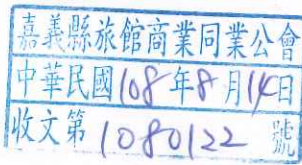 嘉義縣旅館商業同業公會
中華民國108年8月14日
收文第1080122號